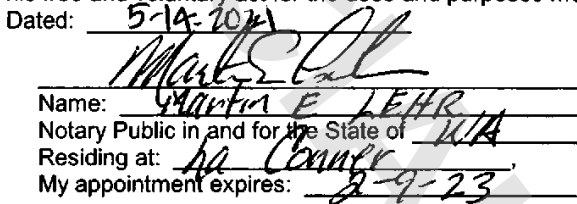 Dated: 5-14-2021
Name: Martin E LEHR
Notary Public in and for the State of WA
Residing at: La Conner,
My appointment expires: 2-9-23